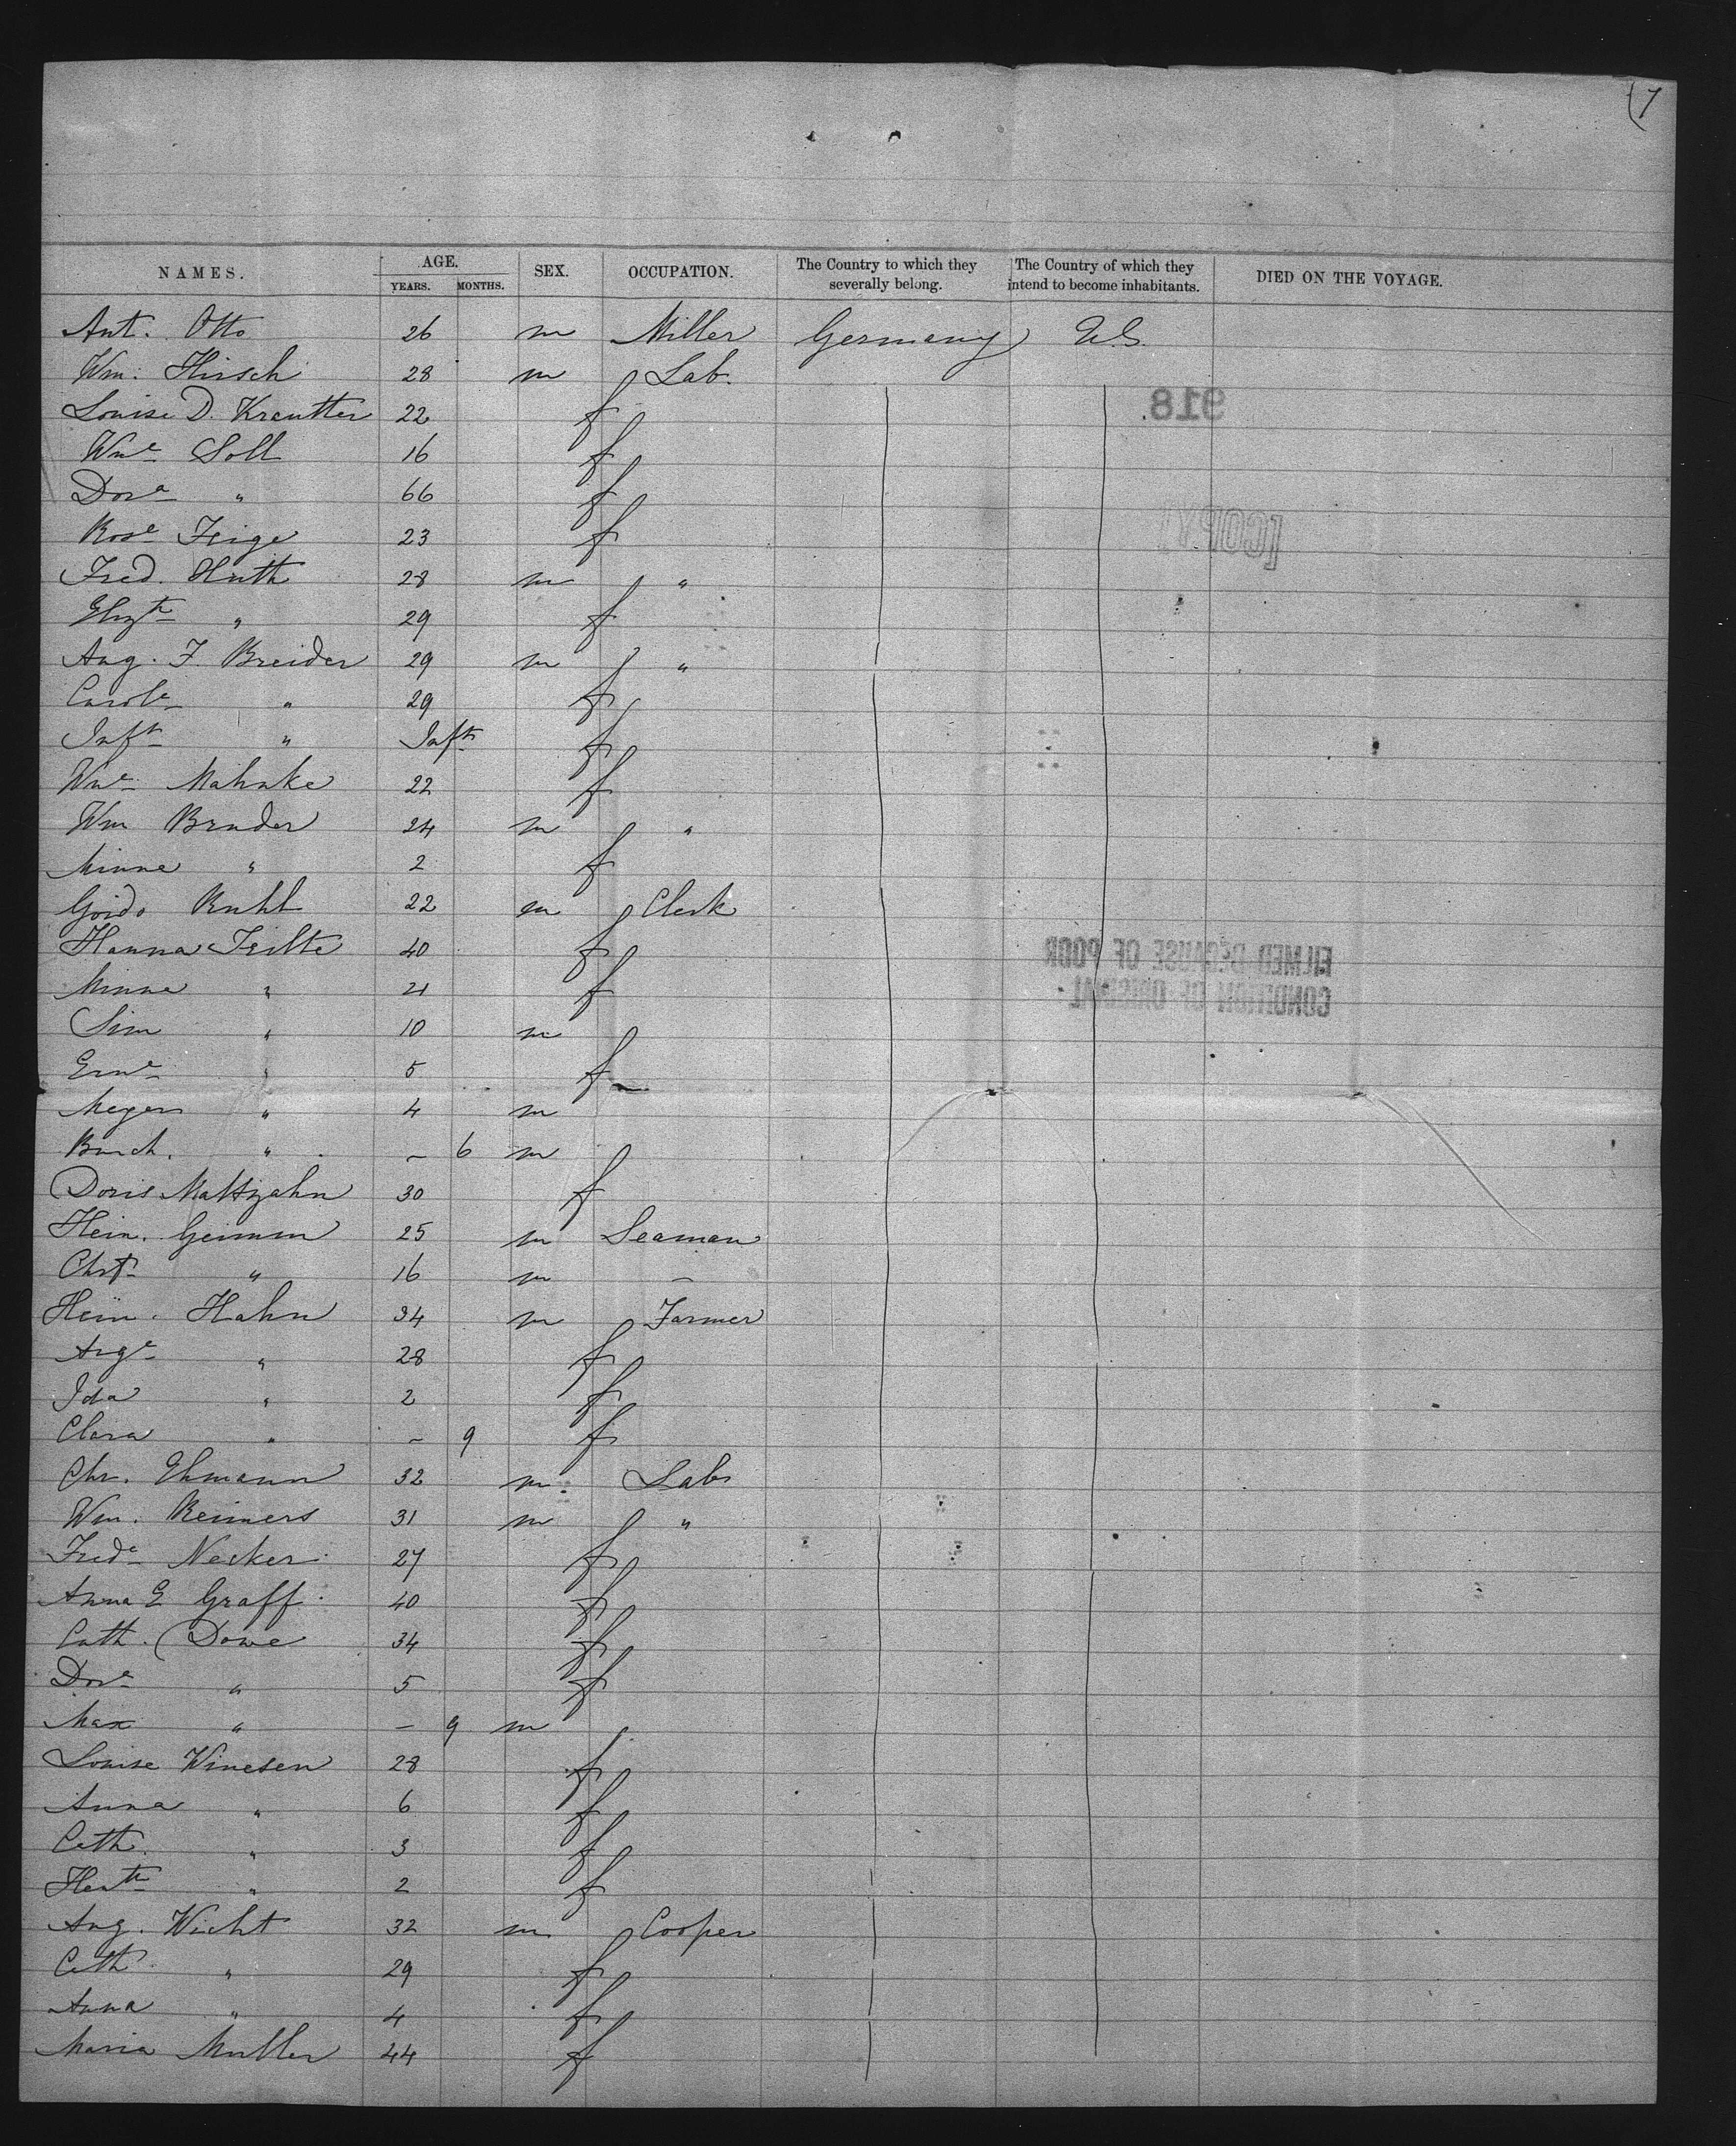 (7
NAMES. AGE. YEARS. MONTHS. SEX. OCCUPATION. The Country to which they severally belong. The Country of which they intend to become inhabitants. DIED ON THE VOYAGE.
Ant. Otto 26 m Miller Germany U.S.
Wm. Hirsch 28 m Lab.
Louise D. Krautter 22 f
918.
Wme Soll 16 f
Dora " 66 f
Rose Feige 23 f
[COPY]
Fred. Huth 28 m "
Elizth " 29 f
Aug. F. Breider 29 m "
Carole " 29 f
Inft " Inft f
Wme Mahnke 22 f
Wm Bruder 24 m "
Minna " 2 f
Goido Ruhl 22 m Clerk
Hanna 40 f
FILMED BECAUSE OF POOR
CONDITION OF ORIGINAL.
Minna " 21 f
Sim " 10 m
Erne " 5 f
Meger " 4 m
Burch. " - 6 m
Doris Maltzahn 30 f
Hein. Geimm 25 m Seaman
Chrt " 16 m -
Hein. Hahn 34 m Farmer
Auge " 28 f
Ida " 2 f
Clara " - 9 f
Chr. Ehmann 32 m. Lab
Wm. Reimers 31 m "
Frede Necker 27 f
Anna E Graff 40 f
Cath. Dowe 34 f
Dore " 5 f
Max " - 9 m
Louise Winesen 28 f
Anna " 6 f
Cath. " 3 f
Hentte " 2 f
Aug. Wicht 32 m Cooper
Cath " 29 f
Anna " 4 f
Maria Muller 44 f